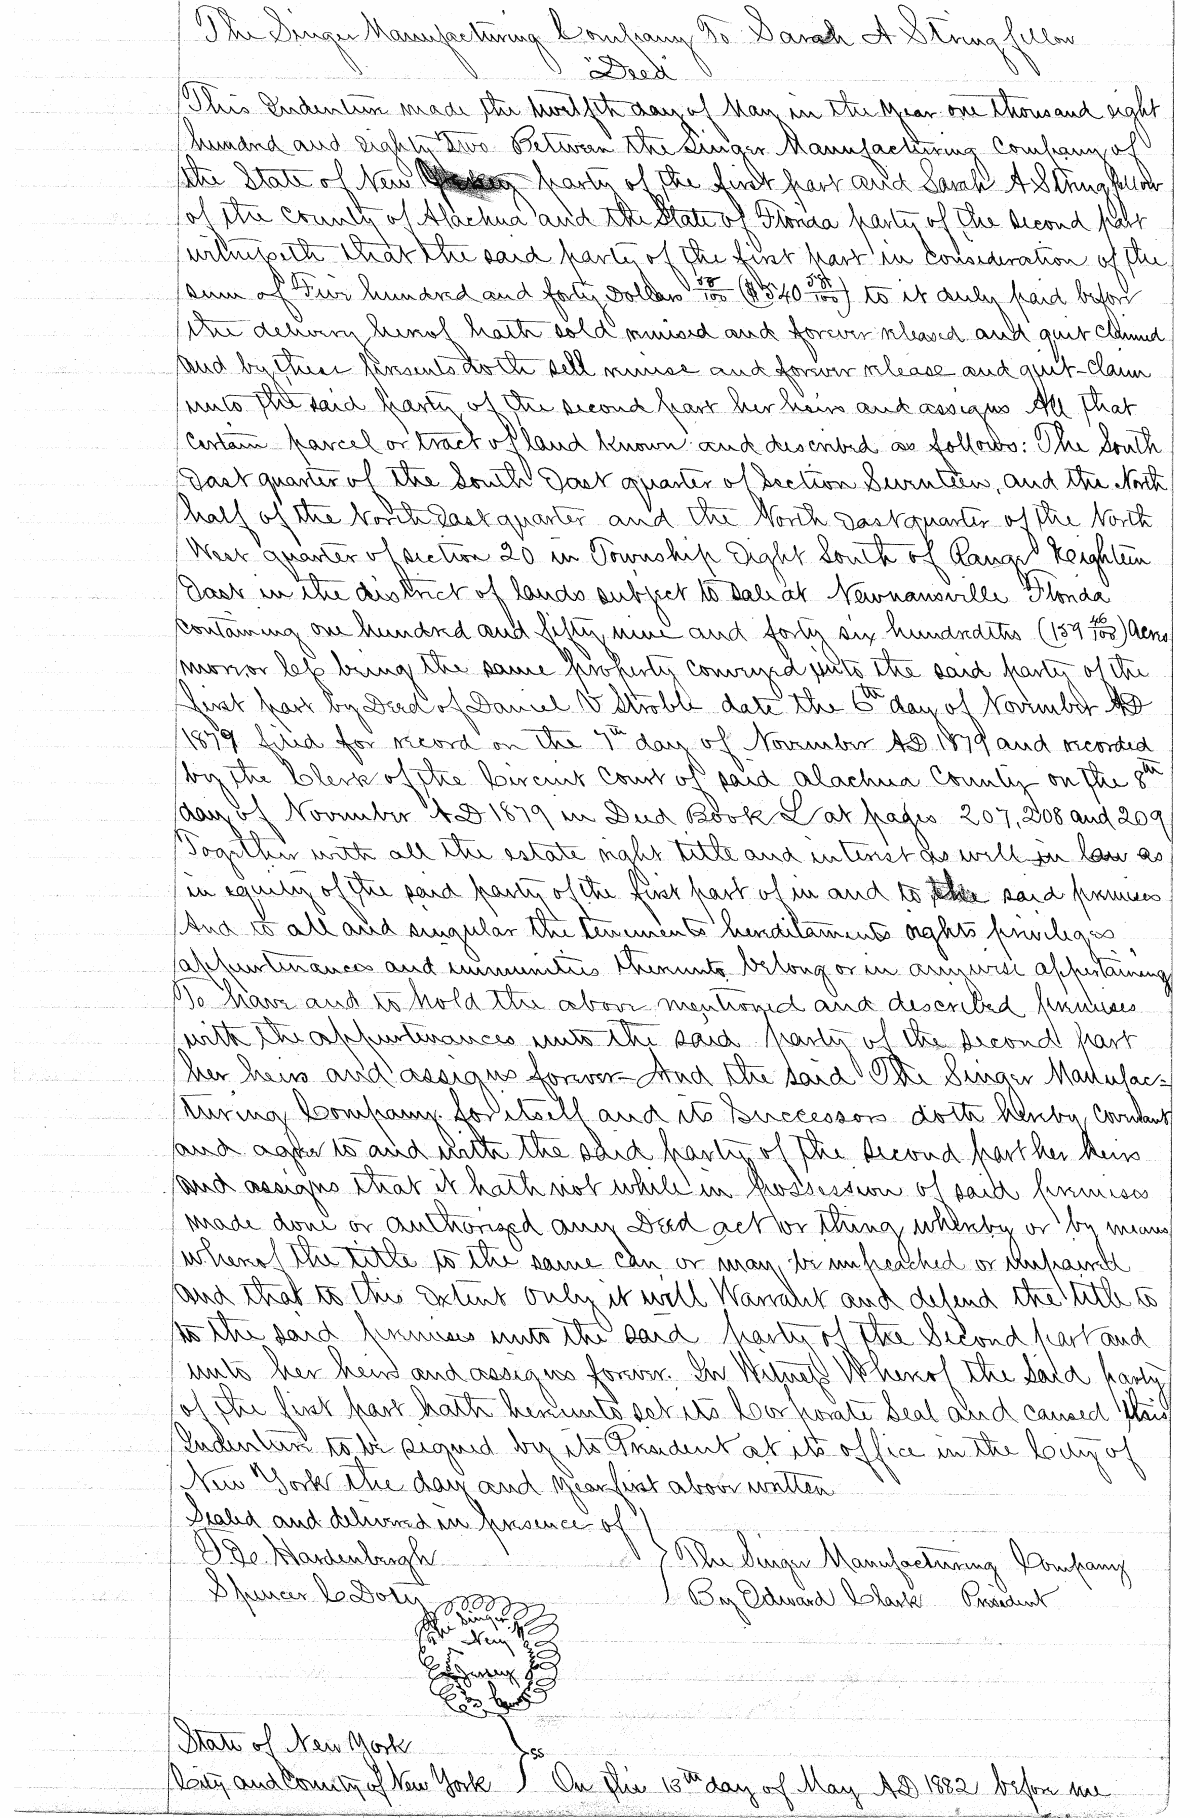 The Singer Manufacturing Company To Sarah A Stringfellow
"Deed"
This Indenture made the twelfth day of May in the Year one thousand eight
hundred and eighty Two Between the Singer Manufacturing Company of
the State of New party of the first part and Sarah A Stringfellow
of the county of Alachua and the State of Florida party of the second part
witnesseth that the said party of the first part in consideration of the
sum of Five hundred and forty Dollars 58/100 ($540 58/100) to it duly paid before
the delivery hereof hath sold remised and forever released and quit claimed
and by these presents doth sell remise and forever release and quit-claim
unto the said party of the second part her heirs and assigns All that
certain parcel or tract of land known and described as follows: The South
East quarter of the South East quarter of Section Seventeen, and the North
half of the North East quarter and the North East quarter of the North
West quarter of section 20 in Township Eight South of Range Eighteen
East in the district of lands subject to sale at Newnansville Florida
containing one hundred and fifty nine and forty six hundredths (159 46/100) Acres
more or less being the same property conveyed unto the said party of the
first part by Deed of Daniel V Stroble date the 6th day of November AD
1879 filed for record on the 7th day of November AD 1879 and recorded
by the Clerk of the Circuit Court of said Alachua County on the 8th
day of November AD 1879 in Deed Book L at pages 207, 208 and 209
Together with all the estate right title and interest as well in law as
in equity of the said party of the first part of in and to the said premises
And to all and singular the tenements hereditaments rights privileges
appurtenances and immunities thereunto belong or in anywise appertaining
To have and to hold the above mentioned and described premises
with the appurtenances unto the said party of the second part
her heirs and assigns forever – And the said The Singer Manufac-
turing Company for itself and its Successors doth hereby covenant
and agree to and with the said party of the second part her heirs
and assigns that it hath not while in possession of said premises
made done or authorized any Deed act or thing whereby or by means
whereof the title to the same can or may be impeached or impaired
and that to this Extent only it will Warrant and defend the title to
to the said premises unto the said party of the Second part and
unto her heirs and assigns forever. In Witness Whereof the said party
of the first part hath hereunto set its Corporate Seal and caused this
Indenture to be signed by its President at its office in the City of
New York the day and year first above written
Sealed and delivered in presence of
Hardenbergh The Singer Manufacturing Company
Spencer C Doty By Edward Clark President
The Singer
New
State of New York
City and County of New York } ss On this 13th day of May AD 1882 before me